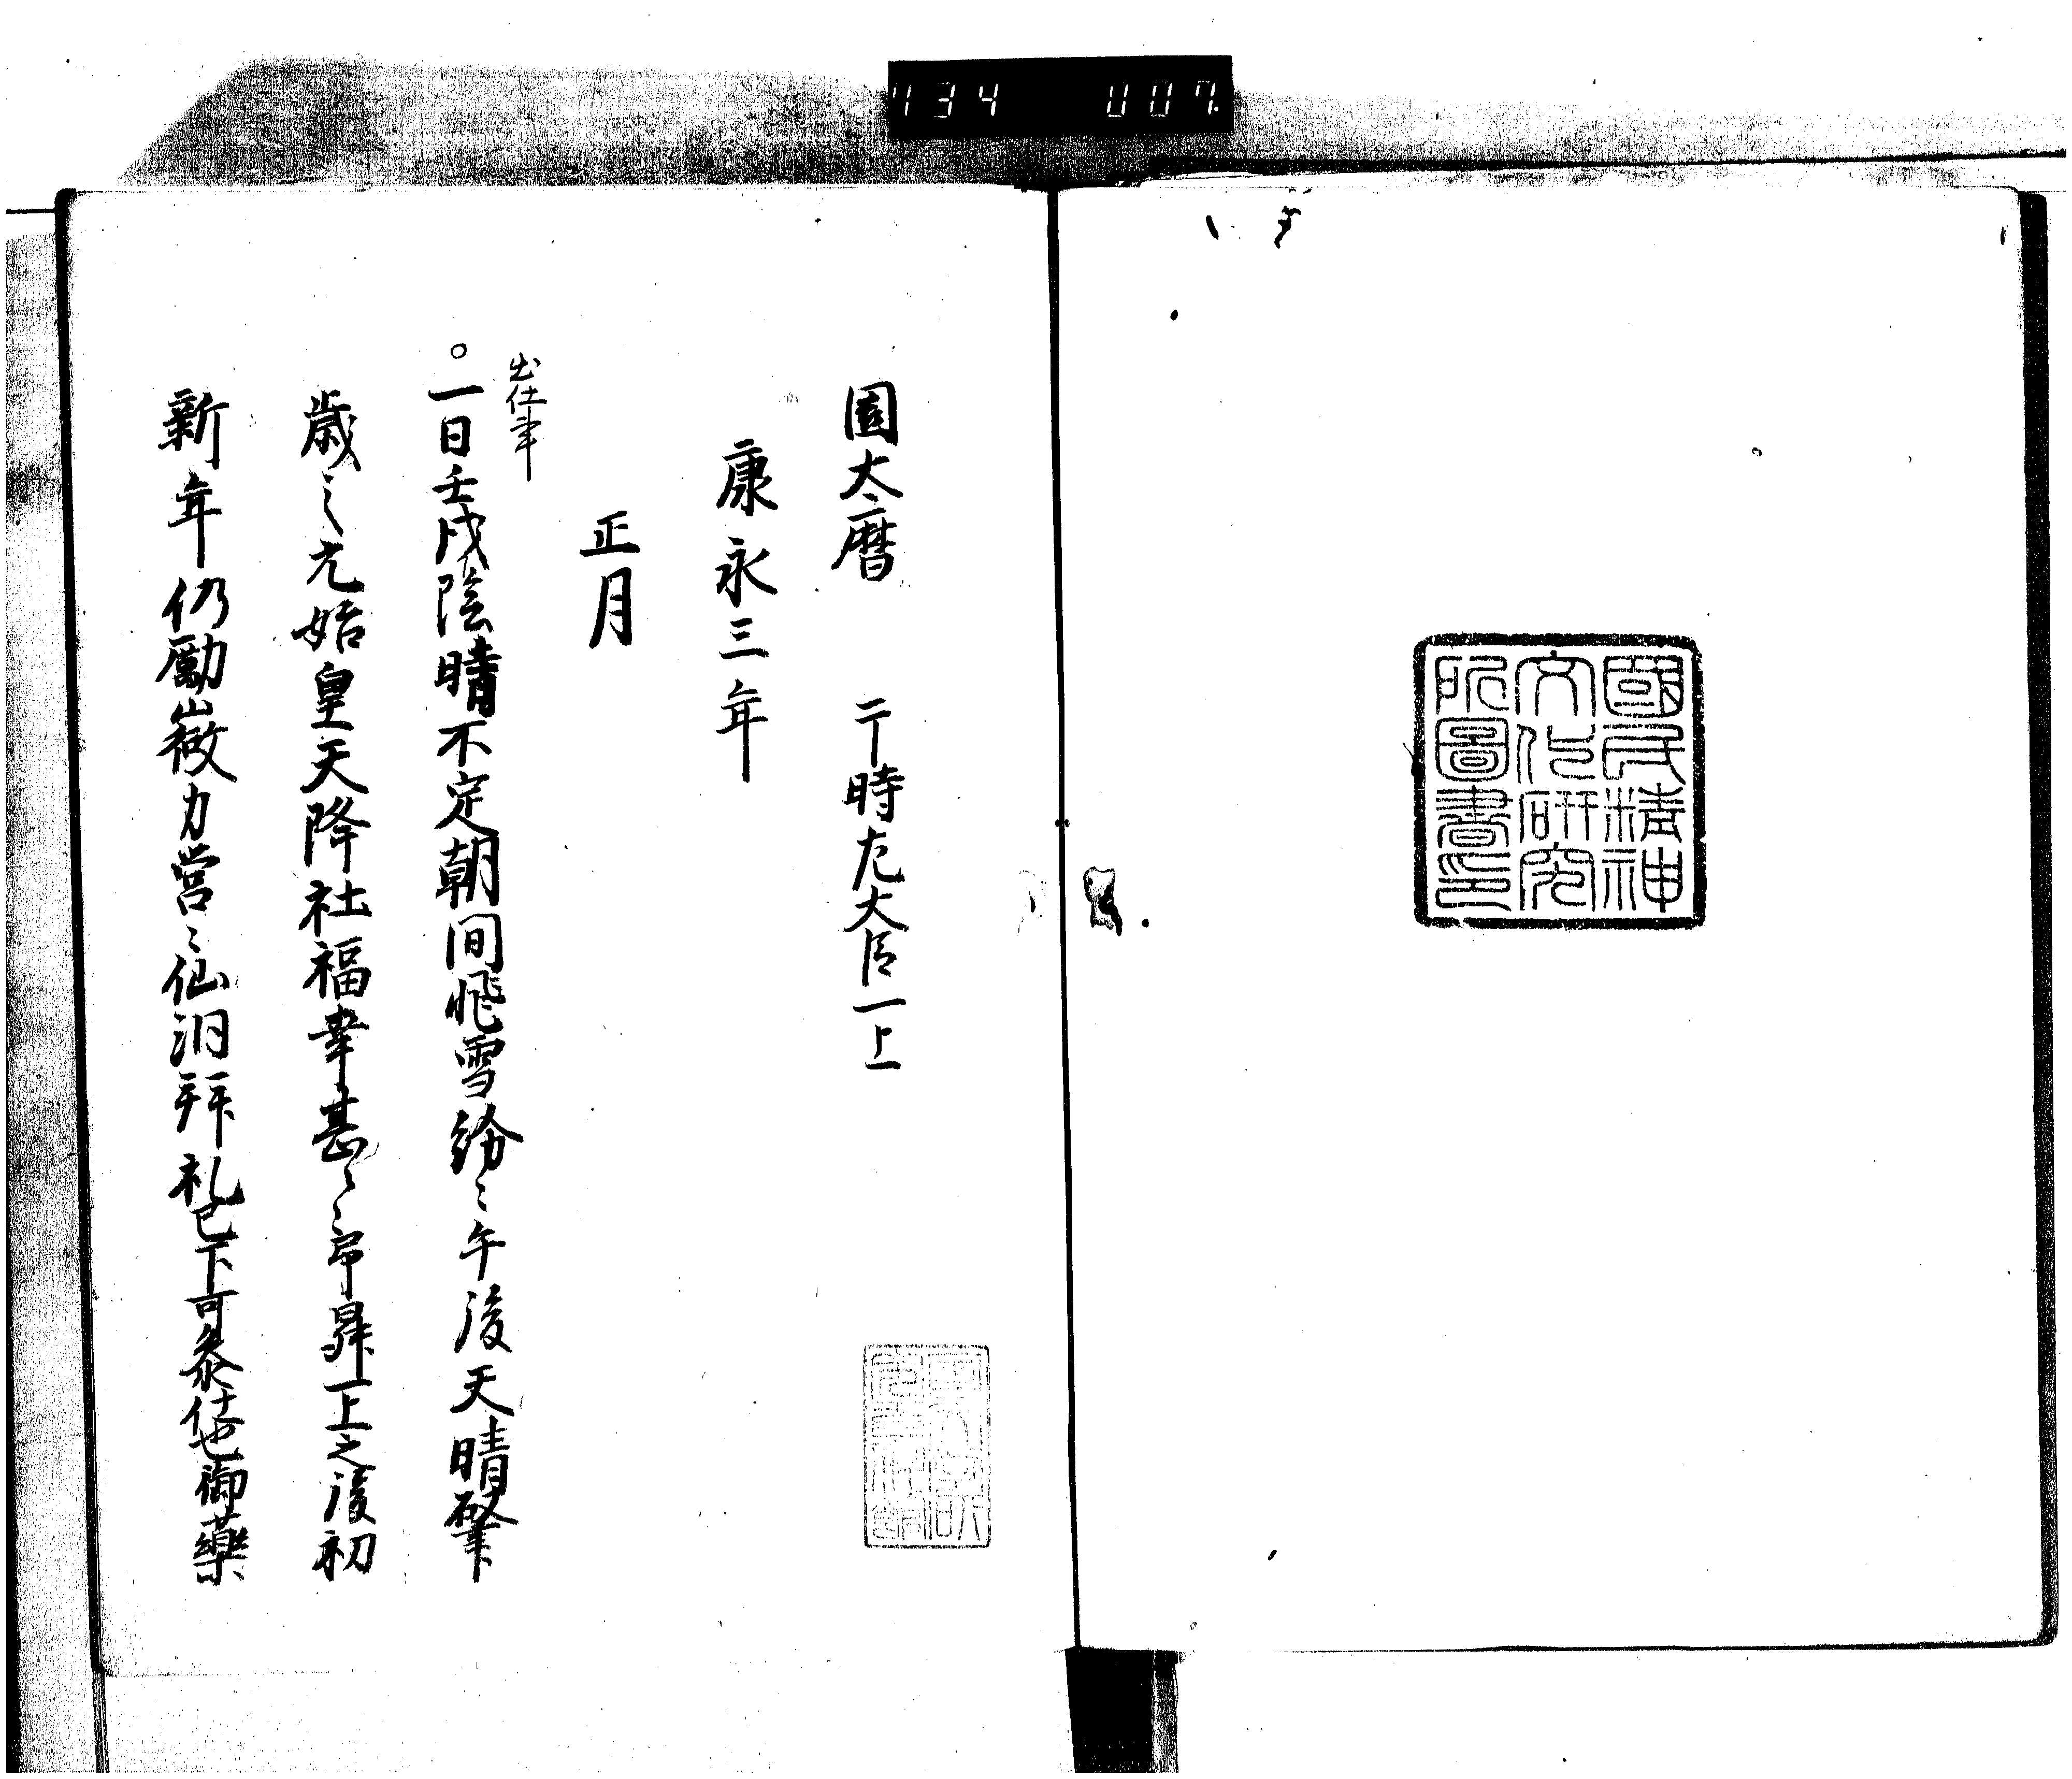 134 007
國民精神
文化研究
所圖書印
園太暦 于時左大臣一上
康永三年
正月
出仕事
○一日壬戌陰晴不定朝間飛雪紛〻午後天晴肇
歳之元始皇天降祉福幸甚〻〻昇一上之後初
新年仍勵微力営〻仙洞拝礼已下可参仕也御薬